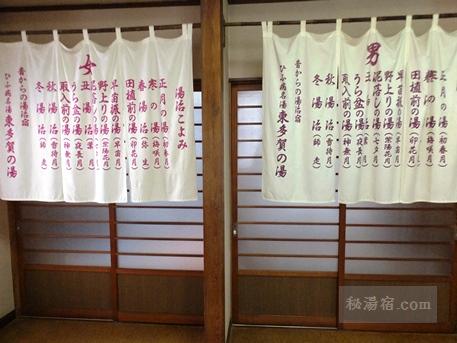 女
湯治こよみ
正月の湯(初春月)
寒の湯(梅咲月)
春湯治(弥生)
田植前の湯(卯花月)
早苗振の湯(早苗月)
野上りの湯(紫陽花月)
丑湯治(葉月)
うら盆の湯(夜長月)
取入前の湯(神無月)
秋湯治(雪待月)
冬湯治(師走)
昔からの湯治宿
ひふ病名湯 東多賀の湯
男
正月の湯(初春月)
寒の湯(梅咲月)
田植前の湯(卯花月)
早苗振の湯(早苗月)
野上りの湯(紫陽花月)
泥落しの湯(七夕月)
うら盆の湯(夜長月)
取入前の湯(神無月)
秋湯治(雪待月)
冬湯治(師走)
昔からの湯治宿
ひふ病名湯 東多賀の湯
秘湯宿.com